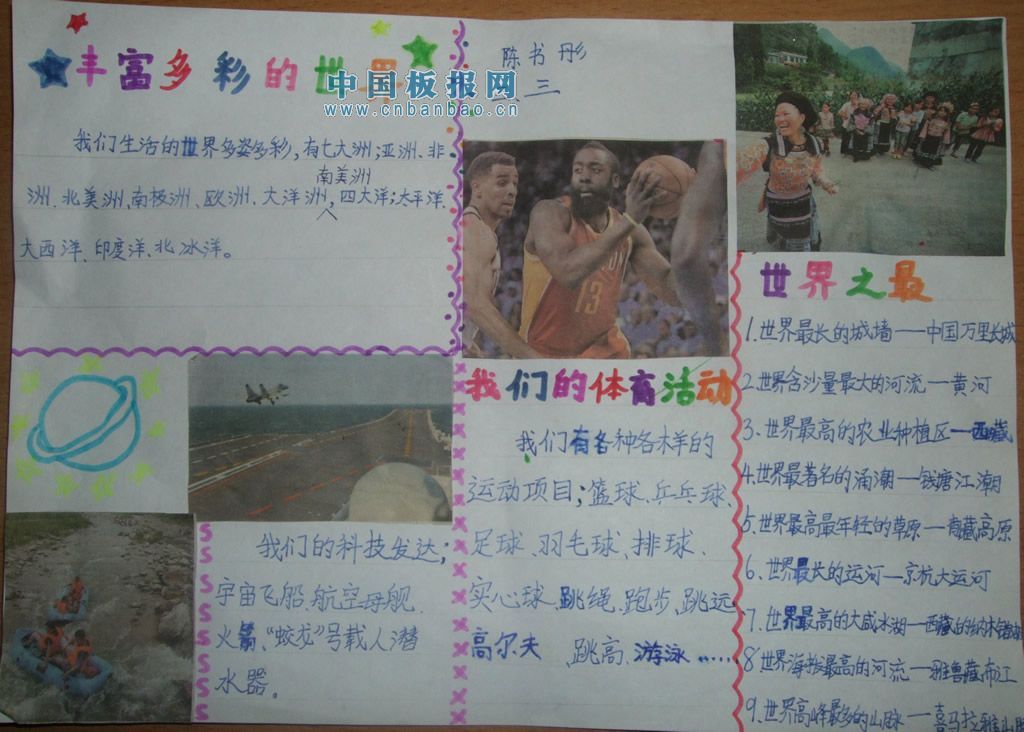 丰富多彩的世界
中国板报网
www.cnbanbao.cn
我们生活的世界多姿多彩,有七大洲;亚洲、非
南美洲
洲、北美洲、南极洲、欧洲、大洋洲,四大洋;太平洋、
大西洋、印度洋、北冰洋。
陈书彤
三
13
我们的科技发达;
宇宙飞船、航空母舰、
火箭、“蛟龙”号载人潜
水器。
我们的体育活动
我们有各种各样的
运动项目;篮球、乒乓球、
足球、羽毛球、排球、
实心球、跳绳、跑步、跳远
高尔夫、跳高、游泳……
世界之最
1.世界最长的城墙——中国万里长城
2.世界含沙量最大的河流—黄河
3.世界最高的农业种植区—西藏
4.世界最著名的涌潮——钱塘江潮
5.世界最高最年轻的草原—青藏高原
6.世界最长的运河—京杭大运河
7.世界最高的大咸水湖—西藏的纳木错
8.世界海拔最高的河流—雅鲁藏布江
9.世界高峰最多的山脉—喜马拉雅山脉